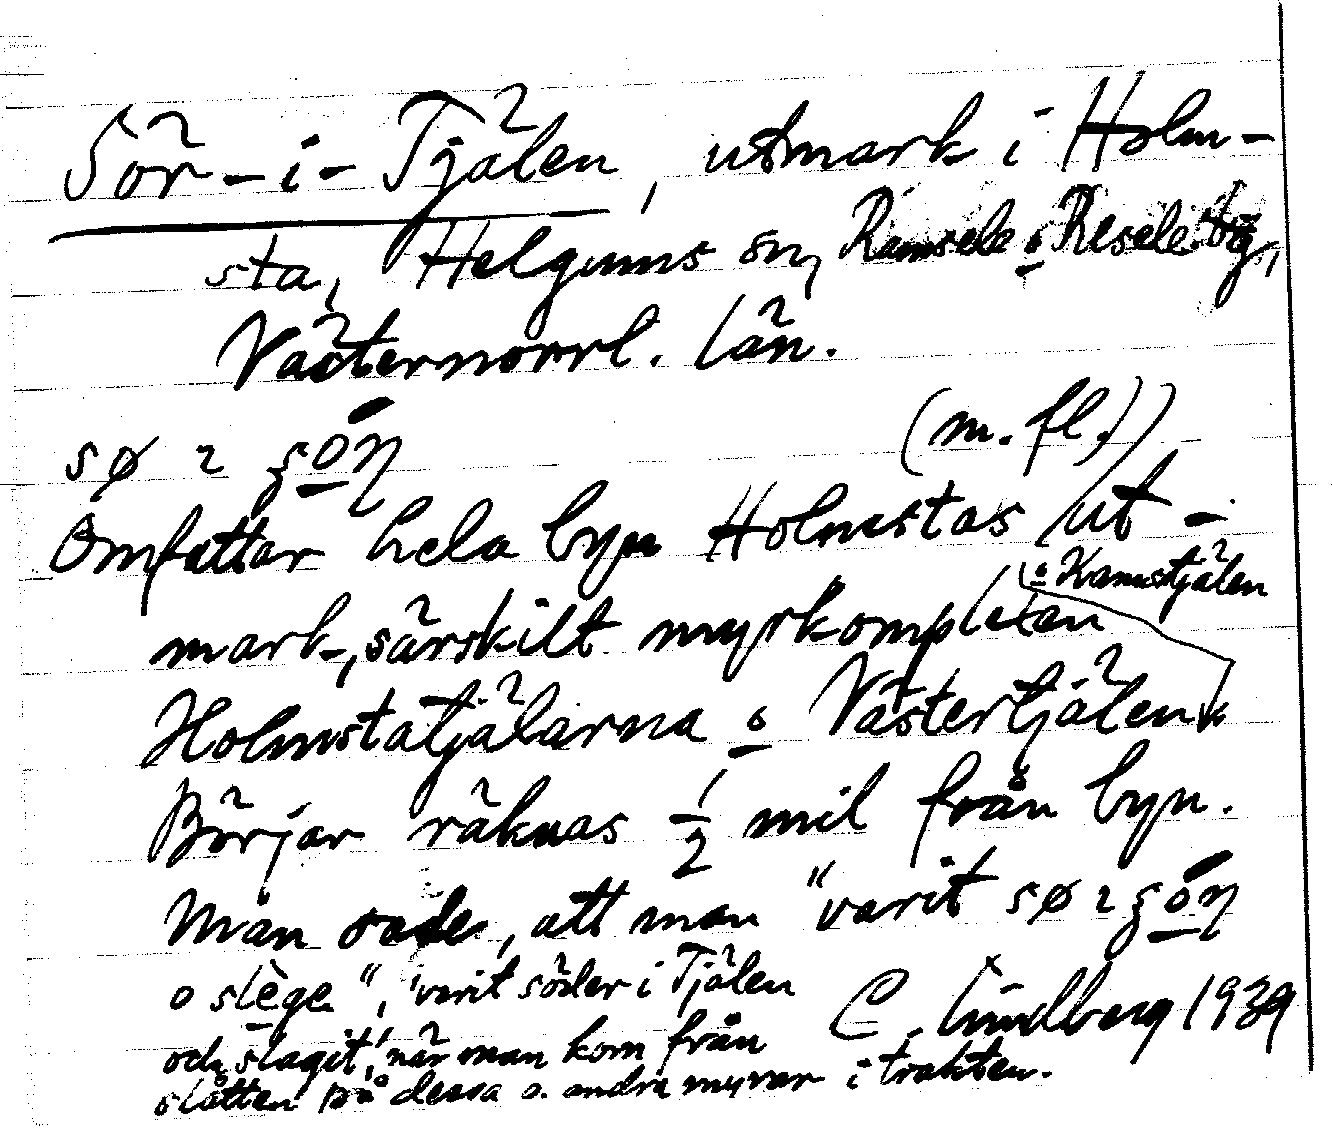 Sör-i-Tjälen, utmark i Holm-
sta, Helgums sn, Ramsele o Resele tg,
Västernorrl. län.
(m. fl.)
Omfattar hela byn Holmstas ut-
mark, särskilt myrkomplexen
o Kamstjälen
Holmstatjälarna o Västertjälen
Börjar räknas 1/2 mil från byn.
Man sade, att man "varit
o slège", 'varit söder i Tjälen
C. Lindberg 1939
och slagit', när man kom från
slåtten på dessa o. andra myrar i trakten.